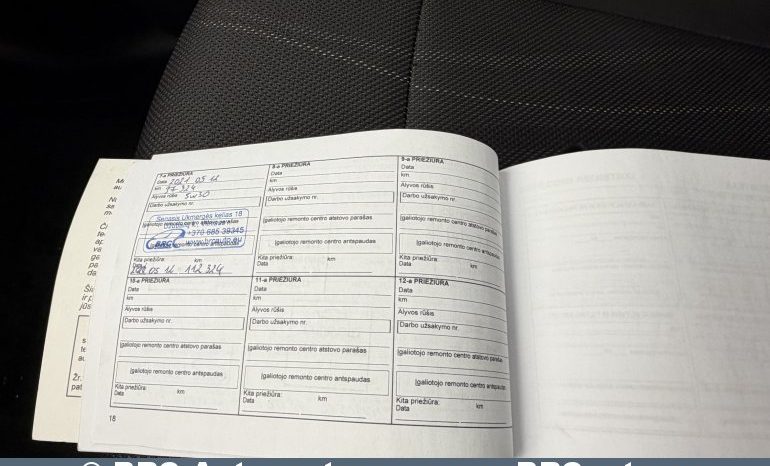 7-a PRIEŽIŪRA
Data 2021 05 11
km 97 324
Alyvos rūšis 5w30
Darbo užsakymo nr.
Senasis Ukmergės kelias 18
+370 685 38345
BRC www.brcauto.eu
Kita priežiūra: km
Data
2022 05 11 112 324
8-a PRIEŽIŪRA
Data
km
Alyvos rūšis
Darbo užsakymo nr.
Įgaliotojo remonto centro atstovo parašas
Įgaliotojo remonto centro antspaudas
Kita priežiūra: km
Data
9-a PRIEŽIŪRA
Data
km
Alyvos rūšis
Darbo užsakymo nr.
Įgaliotojo remonto centro atstovo parašas
Įgaliotojo remonto centro antspaudas
Kita priežiūra: km
Data
10-a PRIEŽIŪRA
Data
km
Alyvos rūšis
Darbo užsakymo nr.
Įgaliotojo remonto centro atstovo parašas
Įgaliotojo remonto centro antspaudas
Kita priežiūra: km
Data
11-a PRIEŽIŪRA
Data
km
Alyvos rūšis
Darbo užsakymo nr.
Įgaliotojo remonto centro atstovo parašas
Įgaliotojo remonto centro antspaudas
Kita priežiūra: km
Data
12-a PRIEŽIŪRA
Data
km
Alyvos rūšis
Darbo užsakymo nr.
Įgaliotojo remonto centro atstovo parašas
Įgaliotojo remonto centro antspaudas
Kita priežiūra: km
Data
18